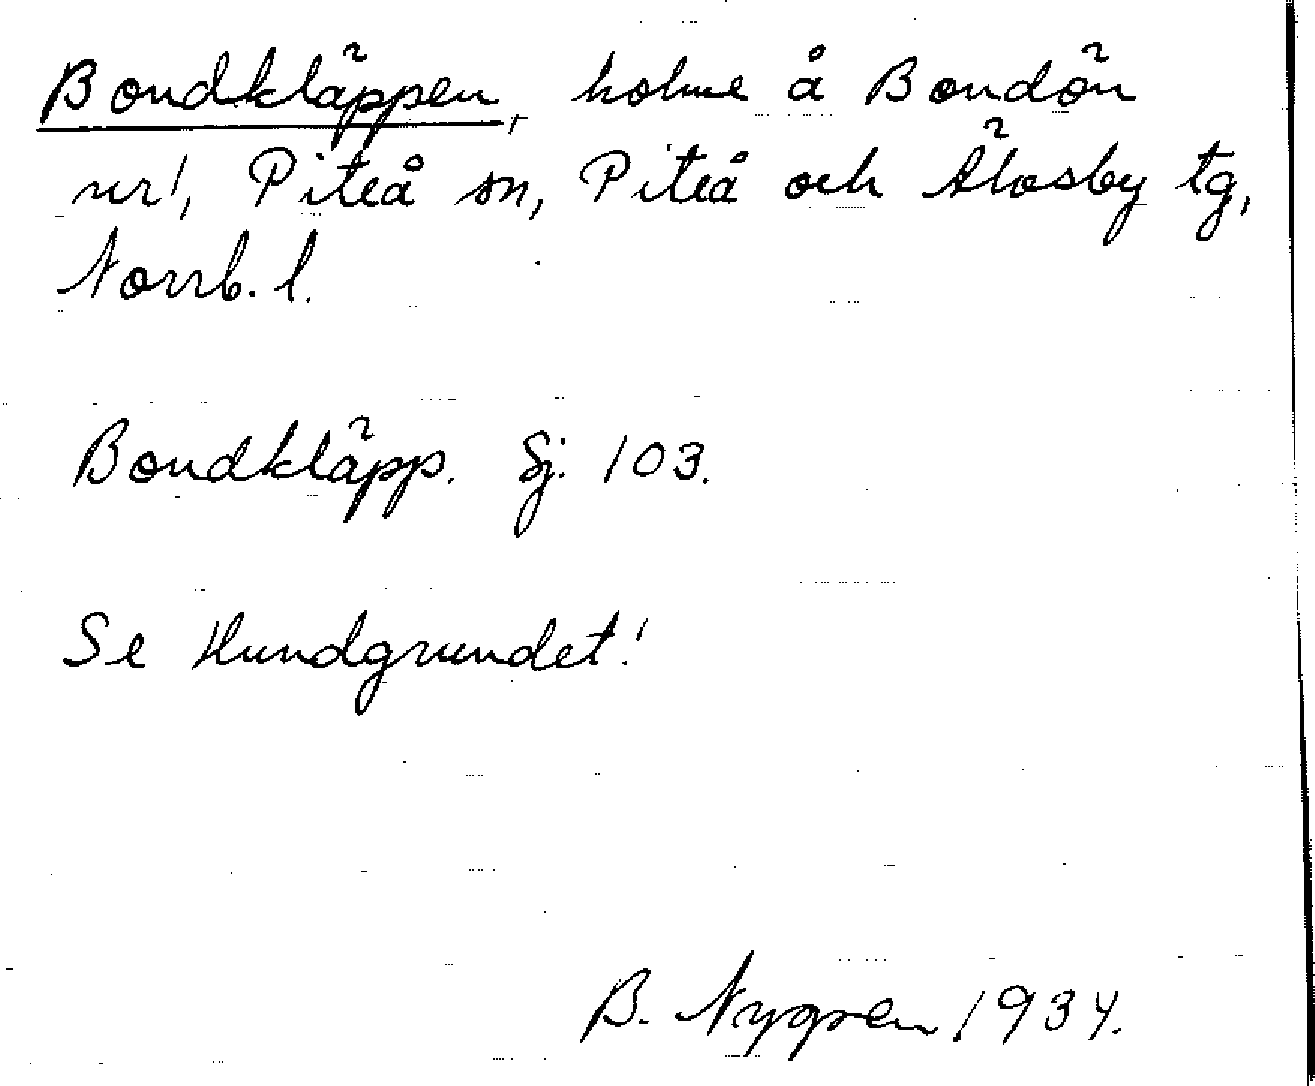 Bondkläppen, holme å Bondön
nr 1, Piteå sn, Piteå och Älvsby tg,
Norrb. l.
Bondkläpp. Sj. 103.
Se Hundgrundet!
B. Nygren 1934.